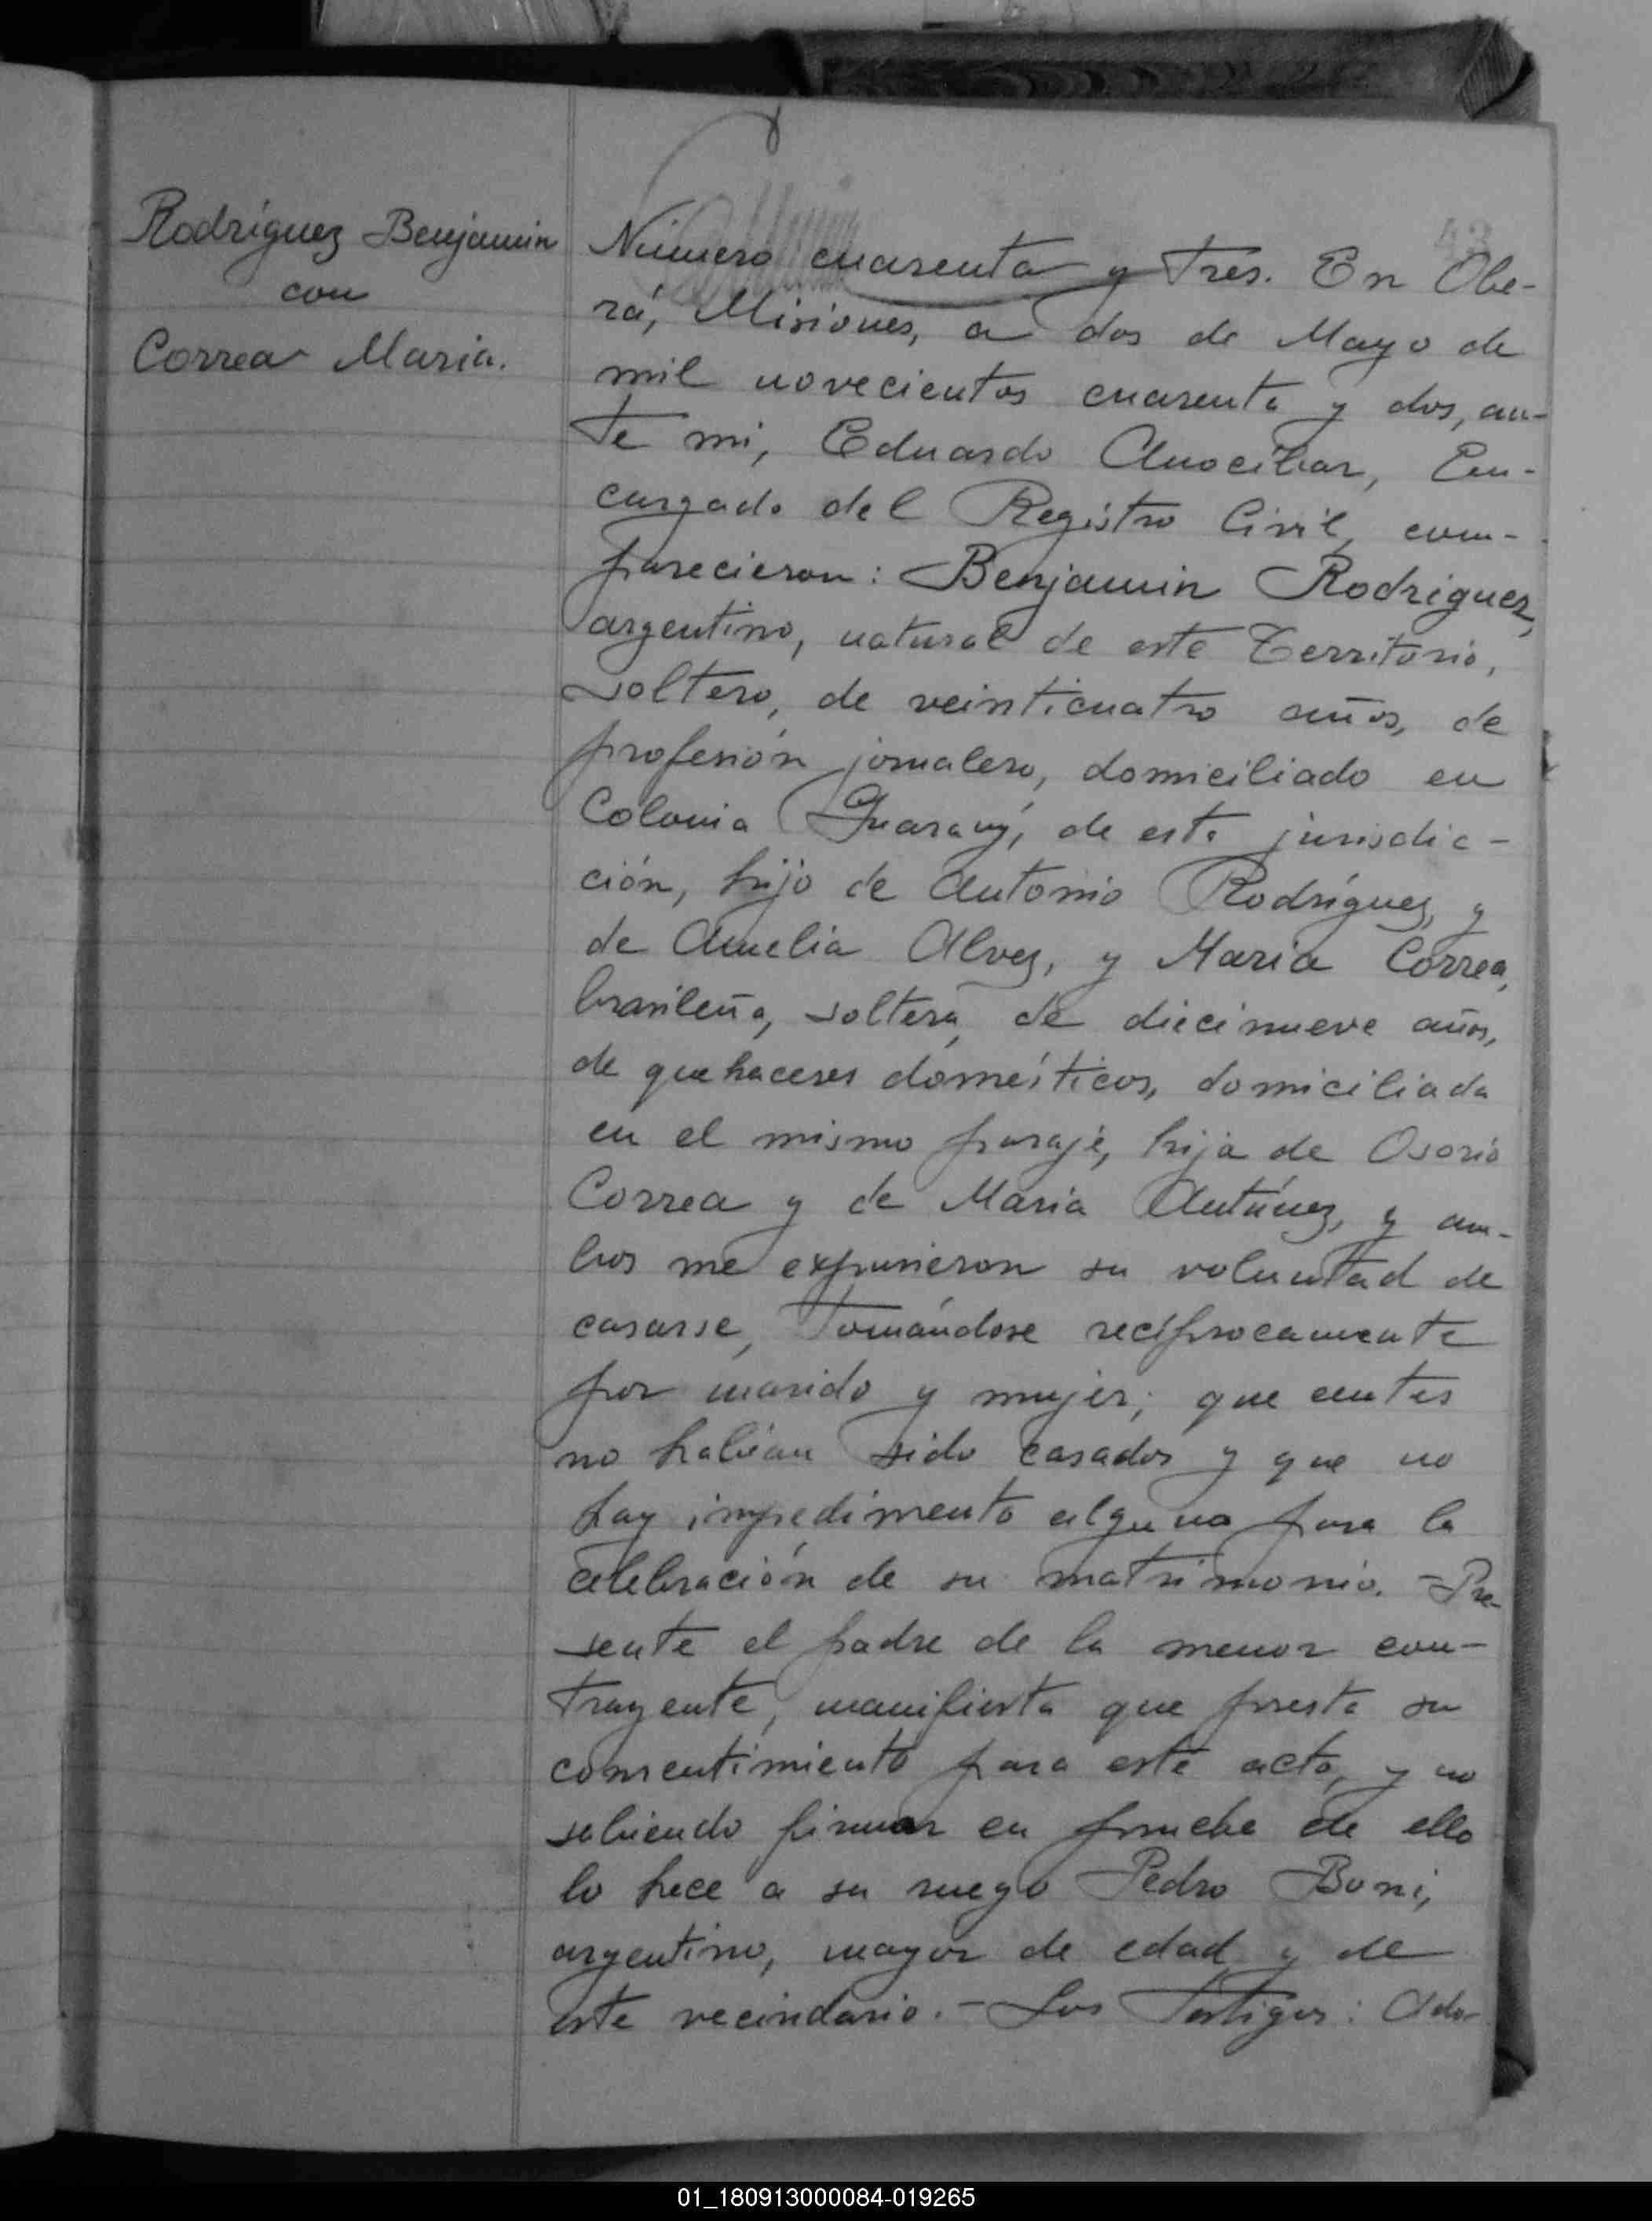 Rodríguez Benjamin
con
Correa Maria.
43
Número cuarenta y tres. En Obe-
rá, Misiones, a dos de Mayo de
mil novecientos cuarenta y dos, an-
te mi, Eduardo Anocibar, En-
cargado del Registro Civil, com-
parecieron: Benjamin Rodriguez,
argentino, natural de este Territorio,
soltero, de veinticuatro años, de
profesión jornalero, domiciliado en
Colonia Guarany, de esta jurisdic-
ción, hijo de Antonio Rodríguez, y
de Amelia Alvez, y Maria Correa,
brasileña, soltera, de diecinueve años,
de quehaceres domésticos, domiciliada
en el mismo paraje, hija de Osorio
Correa y de Maria Antúnez, y am-
bos me expusieron su voluntad de
casarse, tomándose recíprocamente
por marido y mujer; que antes
no habían sido casados y que no
hay impedimento alguno para la
celebración de su matrimonio. - Pre-
sente el padre de la menor con-
trayente, manifiesta que presta su
consentimiento para este acto, y no
sabiendo firmar en prueba de ello
lo hace a su ruego Pedro Boni,
argentino, mayor de edad y de
este vecindario. - Los Testigos: Ado-
01_180913000084-019265